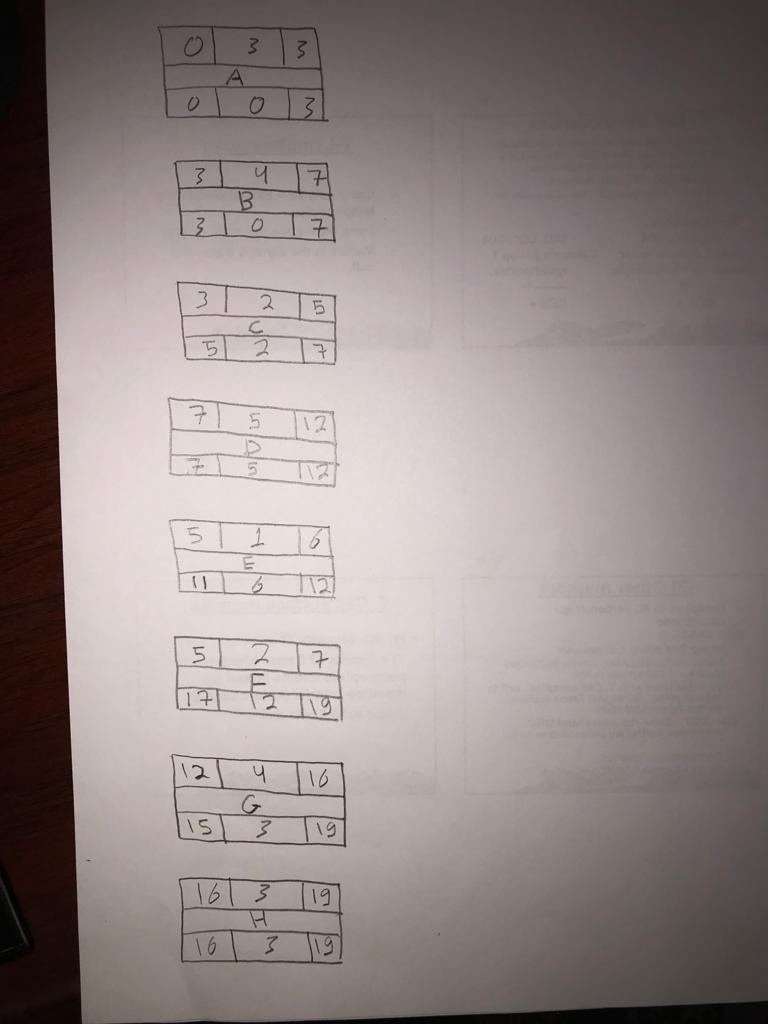 0 3 3
A
0 0 3
3 4 7
B
3 0 7
3 2 5
C
5 2 7
7 5 12
D
7 5 12
5 1 6
E
11 6 12
5 2 7
F
17 12 19
12 4 16
G
15 3 19
16 3 19
H
16 3 19